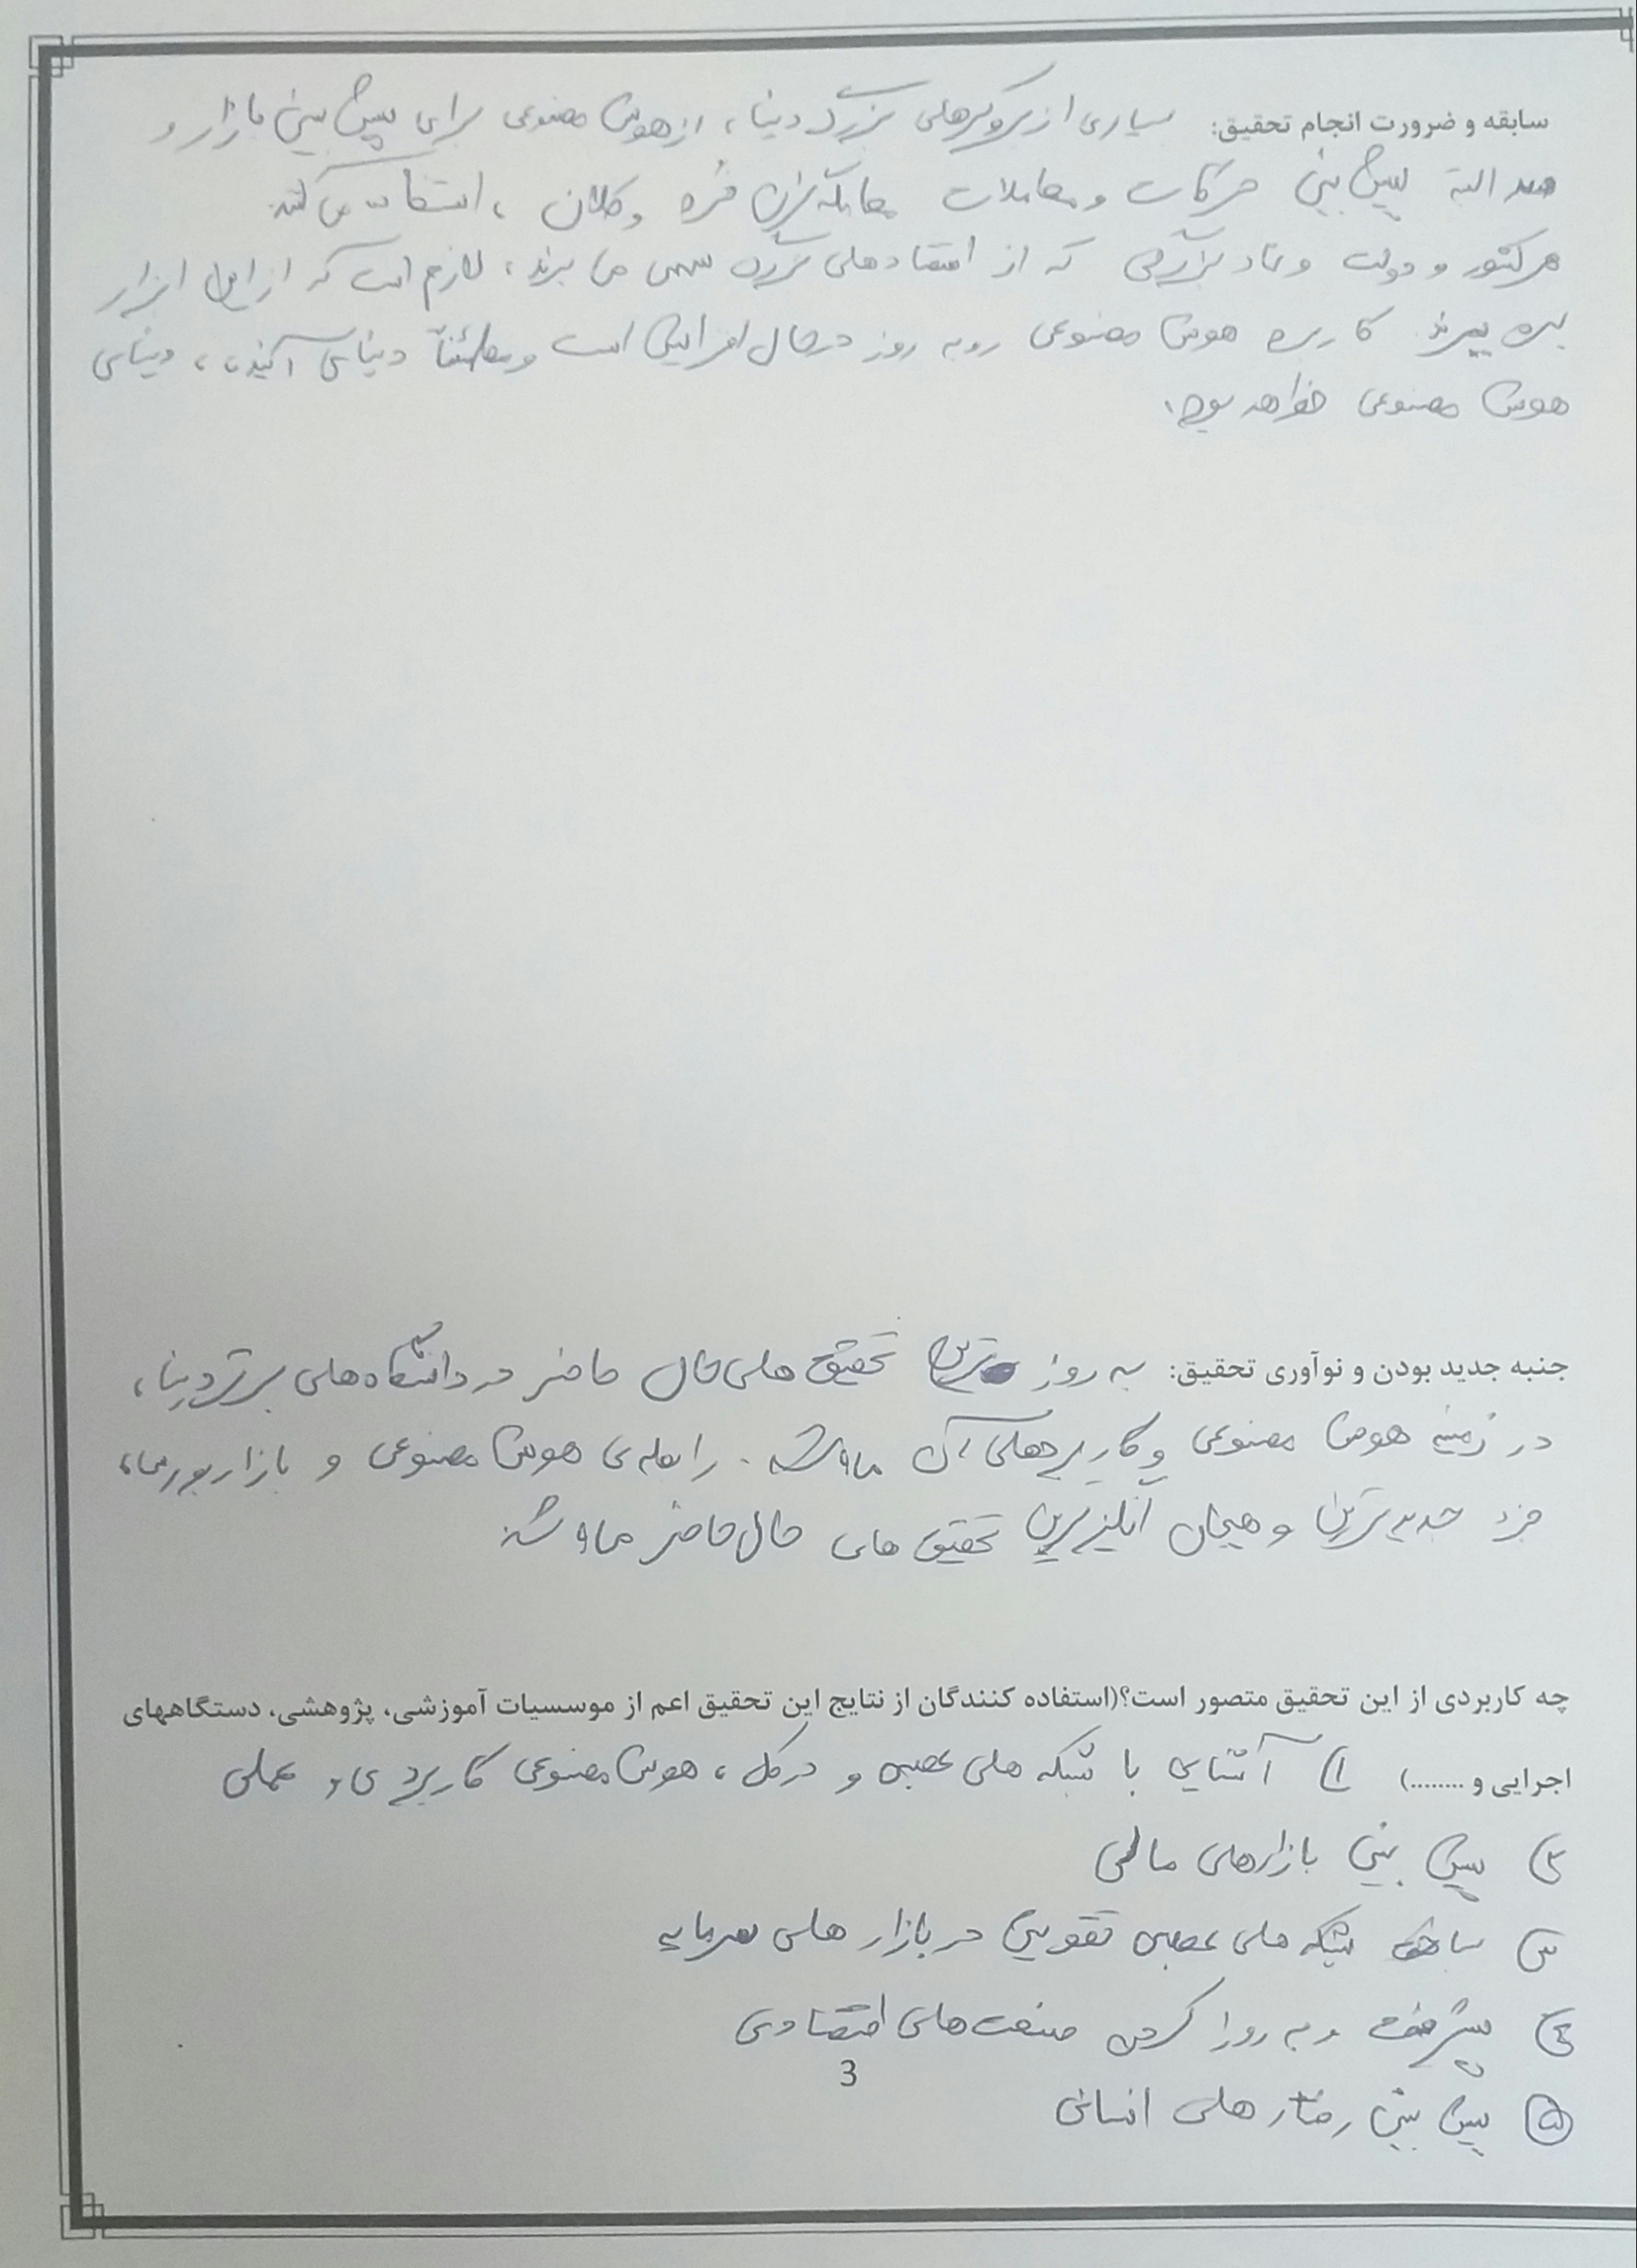 سابقه و ضرورت انجام تحقیق: بسیاری از بروکرهای بزرگ دنیا، از هوش مصنوعی برای پیش بینی بازار و
البته پیش بینی حرکات و معاملات معامله گران خرد و کلان، استفاده می کنند.
هر کشور و دولت و نهاد بزرگی که از اقتصادهای بزرگ سهمی می برند، لازم است که از این ابزار
بهره ببرند. کاربرد هوش مصنوعی رو به روز در حال افزایش است و مطمئناً دنیای آینده، دنیای
هوش مصنوعی خواهد بود.
جنبه جدید بودن و نوآوری تحقیق: به روز ترین تحقیق های حال حاضر در دانشگاه های برتر دنیا،
در زمینه هوش مصنوعی و کاربردهای آن می باشد. رابطه ی هوش مصنوعی و بازار بورس،
جزء جدیدترین و هیجان انگیزترین تحقیق های حال حاضر می باشند
چه کاربردی از این تحقیق متصور است؟(استفاده کنندگان از نتایج این تحقیق اعم از موسسیات آموزشی، پژوهشی، دستگاههای
اجرایی و ........) ۱) آشنایی با شبکه های عصبی و در کل، هوش مصنوعی کاربردی و عملی
۲) پیش بینی بازارهای مالی
۳) ساخت شبکه های عصبی تقویتی در بازار های سرمایه
۴) پیشرفت و به روز کردن صنعت های اقتصادی
3
۵) پیش بینی رفتار های انسانی